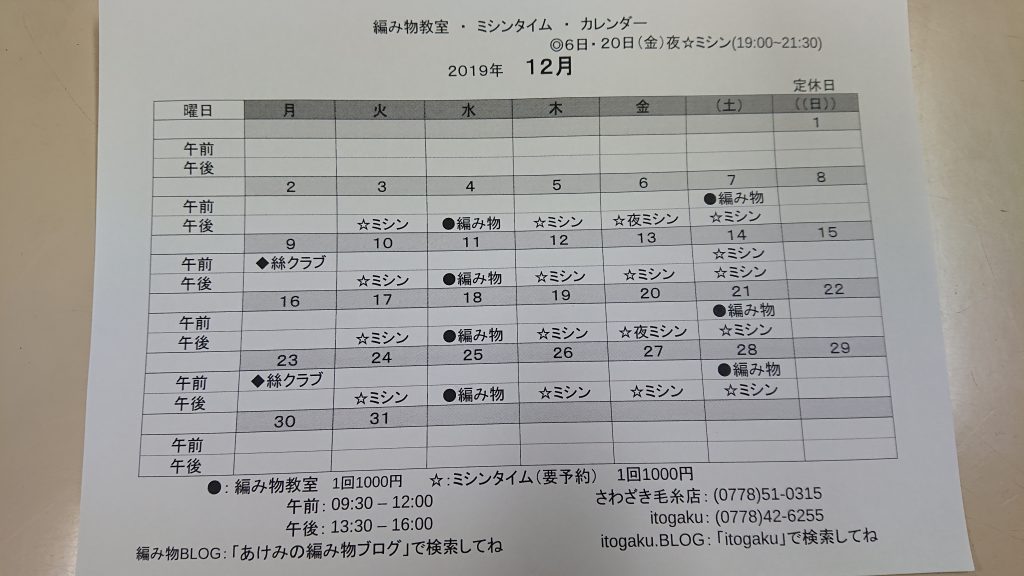 編み物教室 ・ ミシンタイム ・ カレンダー
◎6日・20日(金)夜☆ミシン(19:00~21:30)
2019年 12月
定休日
曜日 月 火 水 木 金 (土) ((日))
1
午前
午後
2 3 4 5 6 7 8
午前 ●編み物
午後 ☆ミシン ●編み物 ☆ミシン ☆夜ミシン ☆ミシン
9 10 11 12 13 14 15
午前 ◆絲クラブ ☆ミシン
午後 ☆ミシン ●編み物 ☆ミシン ☆ミシン ☆ミシン
16 17 18 19 20 21 22
午前 ●編み物
午後 ☆ミシン ●編み物 ☆ミシン ☆夜ミシン ☆ミシン
23 24 25 26 27 28 29
午前 ◆絲クラブ ●編み物
午後 ☆ミシン ●編み物 ☆ミシン ☆ミシン ☆ミシン
30 31
午前
午後
●:編み物教室 1回1000円 ☆:ミシンタイム(要予約) 1回1000円
午前:09:30 – 12:00 さわざき毛糸店:(0778)51-0315
午後:13:30 – 16:00 itogaku:(0778)42-6255
編み物BLOG:「あけみの編み物ブログ」で検索してね itogaku.BLOG:「itogaku」で検索してね